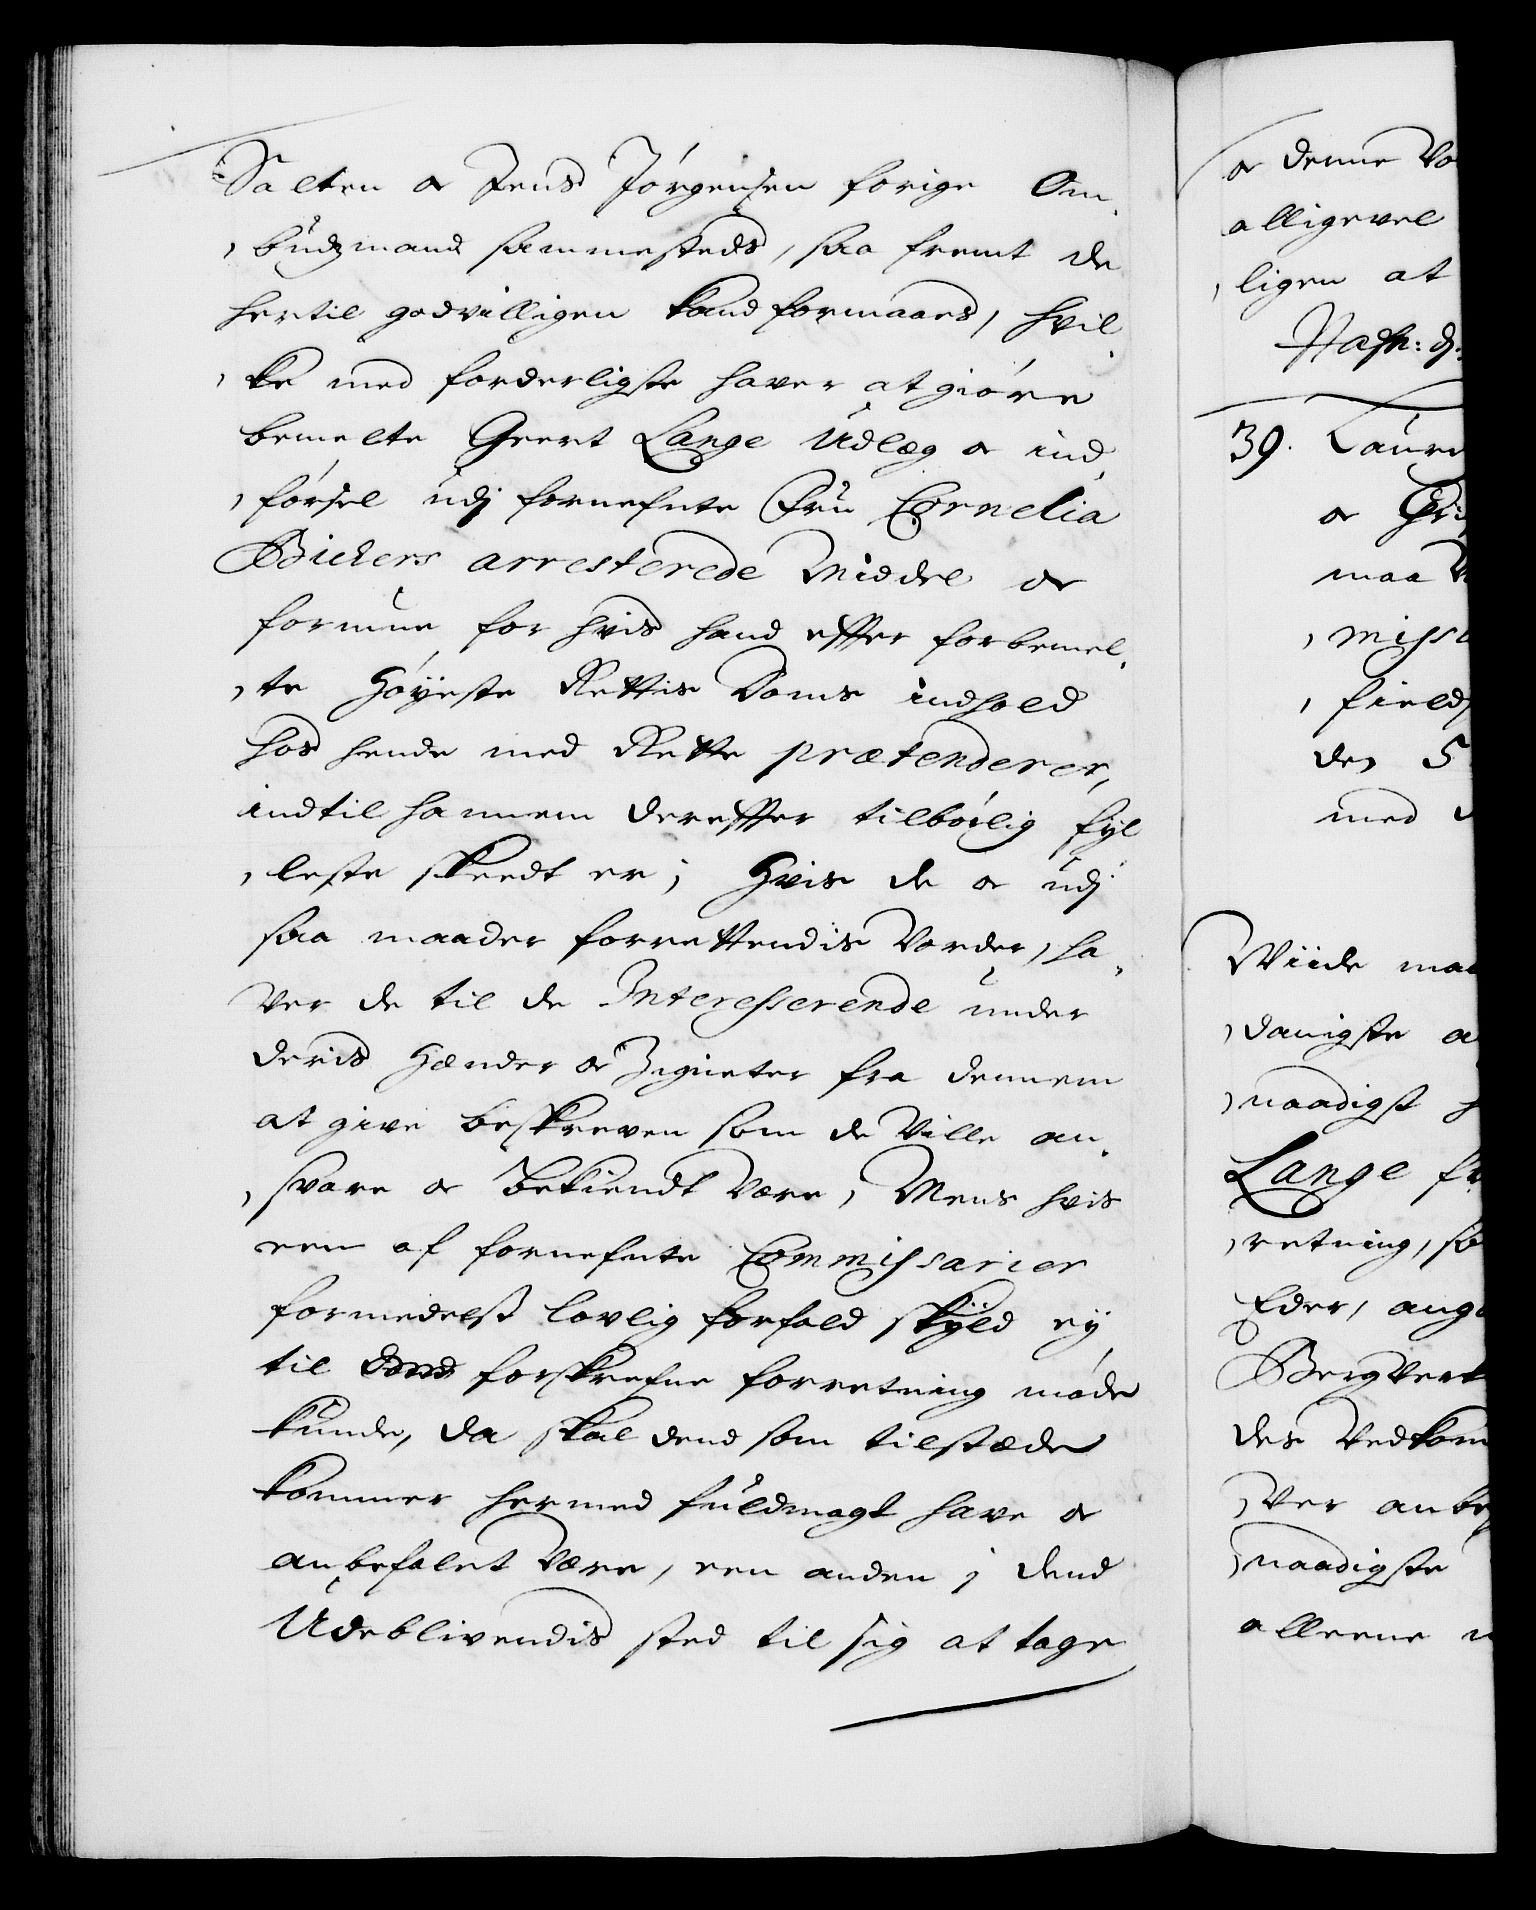 Salten oc Jens Jørgensen forige Om,
,budzmand sammesteds, saa fremt de
hertil godvilligen kand formaaes, hvil,
,ke med forderligste haver at giøre
bemelte Geert Lange Udlæg oc ind,
,førsel udj fornefnte Fru Cornelia
Bickers arresterede Middel oc
formue for hvis hand effter forbemel,
,te Høyeste Rettis Doms indhold
hos hende med Rette prætenderer,
indtil hannem dereffter tilbørlig fyl
,leste skeedt er; Hvis de oc udj
saa maader forrettendis vorder, ha,
ver de til de Interesserende under
deris Hænder oc Zigneter fra dennem
at give beskreven som de ville an,
,svare oc bekiendt være, Mens hvis
een af fornefnte Commissarier
formedelst lovlig forfald skÿld eÿ
til forskrefne forretning møde
kunde, da skal dend som tilstæde
kommer hermed fuldmagt have oc
anbefalet være, een anden j dend
Udeblivendis sted til sig at tage
oc denne
alligevel
,ligen at
39.
oc
maa
,misse
,field
den 5
med
Wiide
,danigste
,naadigst
Lange
,retning,
Eder,
Bergverk
des Vedkom
,ver anbe
,naadigste
alleene